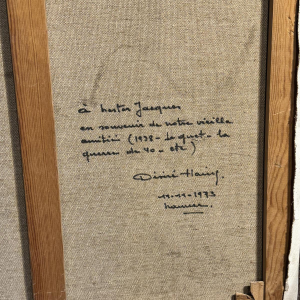 à hestor Jacques
en souvenir de notre vieille
amitié (1938 - Le guet - la
guerre de 40 - etc)
Désiré Haine
11-11-1973